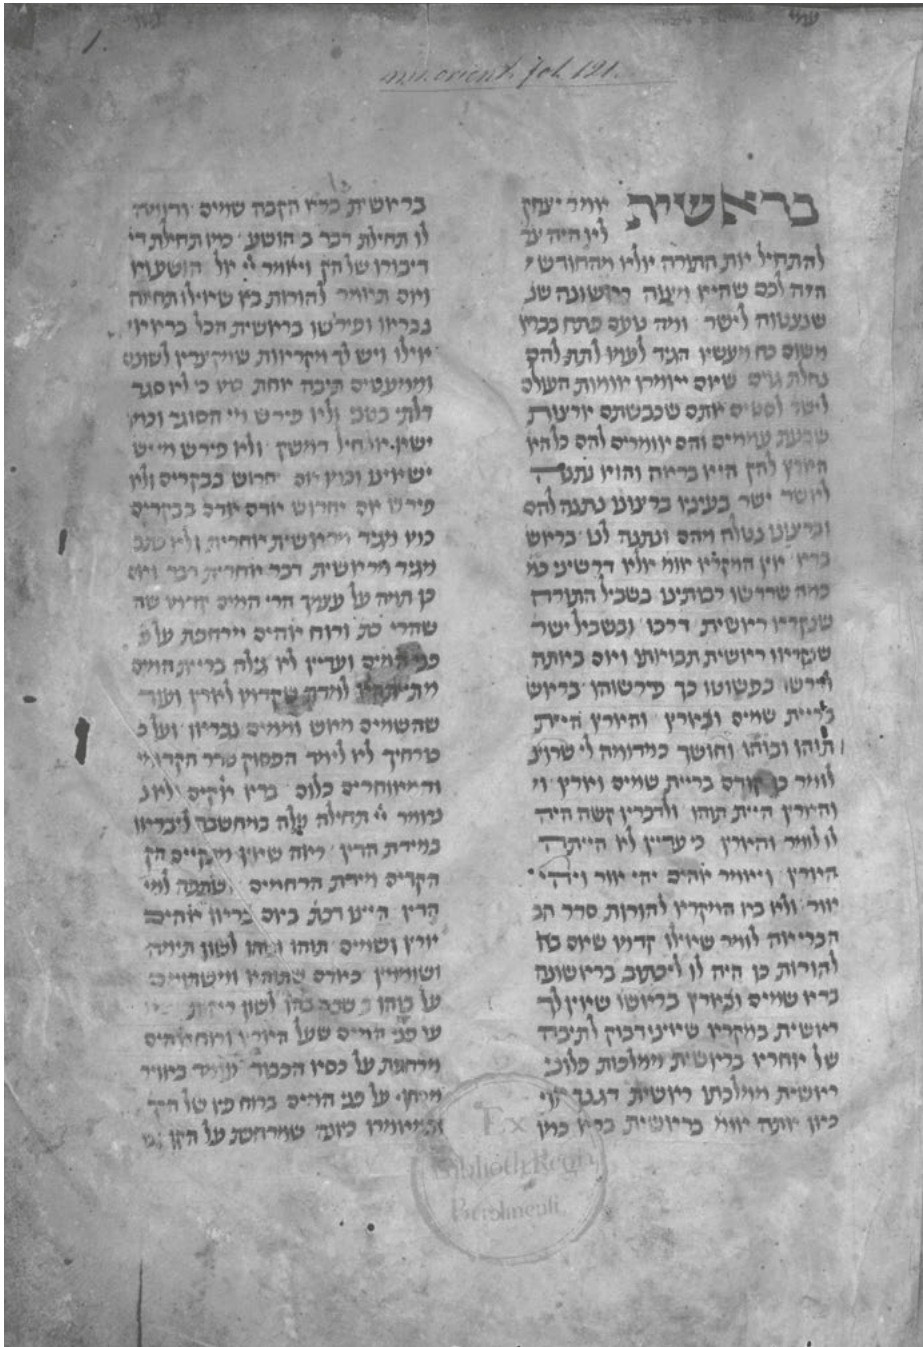 1.
ms. orient. fol. 121.
בראשית אומר יצחק
לא היה צר
להתחיל את התורה אלא מהחודש
הזה לכם שהיא מצוה ראשונה שנ
שנצטוה לישר ומה טעם פתח בברא
משום כח מעשיו הגיד לעמו לתת להם
נחלת גוים שאם יאמרו אומות העולם
לישר לסטים אתם שכבשתם ארצות
שבעת עממים והם אומרים להם כל היא
הארץ להק היא בראה והוא נתנה
לאשר ישר בעיניו ברצונו נתנה להם
וברצונו נטלה מהם ונתנה לנו בראש
ברא אין המקרא אומ אלא דרשיני כמ
כמה שדרשו רבותינו בשביל התורה
שנקרא ראשית דרכו ובשביל ישר
שנקראו ראשית תבואתו ואם באתה
לדרשו כפשוטו כך פירשוהו בראש
בריית שמים וארץ והארץ היית
תוהו ובוהו וחושך כמדומה לי שרוצ
לומר כן קודם בריית שמים וארץ וי
והארץ היית תוהו ולדברין קשה היה
לו לומר והארץ כי עדיין לא הייתה
הארץ ויאמר אהים יהי אור ויהי
אור ולא בא המקרא להורות סדר הב
הברייה לומר שאילו קדמו שאם בא
להורות כן היה לו ליכתוב בראשונה
ברא שמים וארץ שאין לך
ראשית במקרא שאינו דבוק לתיבה
של אחריו בראשית ממלכות פלוני
ראשית ממלכתו ראשית דגנך אף
כאן אתה אומ בראשית ברא כמו
בראשית ברא הקבה שמים ודומה
לו תחילת דבר ב הושע כמו תחילת די
דיבורו של הק ויאמר לי אל הושע
ואם תאמר להורות בא שאילו תחילה
נבראו ופירשו בראשית הכל ברא
אילו ויש לך מקראות שמקצרין לשונם
וממעטים תיבה אחת כמו כי לא סגר
דלתי בטני ולא פירש מי הסוגר וכמו
ישא את חיל דמשק ולא פירש מי יש
ישאינו וכמו אם יחרוש בבקרים ולא
פירש אם יחרוש אדם בבקרים
כמו מגיד מראשית אחרית ולא כתב
מגיד מראשית דבר אחרית דבר ואם
כן תמה על עצמך הרי המים קדמו שה
שהרי כת ורוח אהים מרחפת על פ
פני המים ועדיין לא גילה בריית המים
מתי היתה למדת שקדמו לארץ ועוד
שהשמים מאש וממים נבראו ועל כ
כורחיך לא לימד הפסוק סדר הקדומי
והמאוחרים כלום ברא אקים לא נ
נאמר יי תחילה עלה במחשבה ליבראו
במידת הדין ראה שאין מתקיים הק
הקדים מידת הרחמים ושתפה למי
הדין היינו דכת ביום ברוא אהים
ארץ ושמים תוהו ובוהו לשון תימה
ושוממין כאדם שתוהא ומשתומם
על בוהו שבה בהו לשון ריקות
על פני המים שעל הארץ ורוח אהים
מרחפת על כסיו הכבוד עומד באויר
מרחף על פני המים ברוח פיו של הק
ובמאמרו כיונה שמרחפת על הקן
Ex
Biblioth. Regia
Berolinensi.